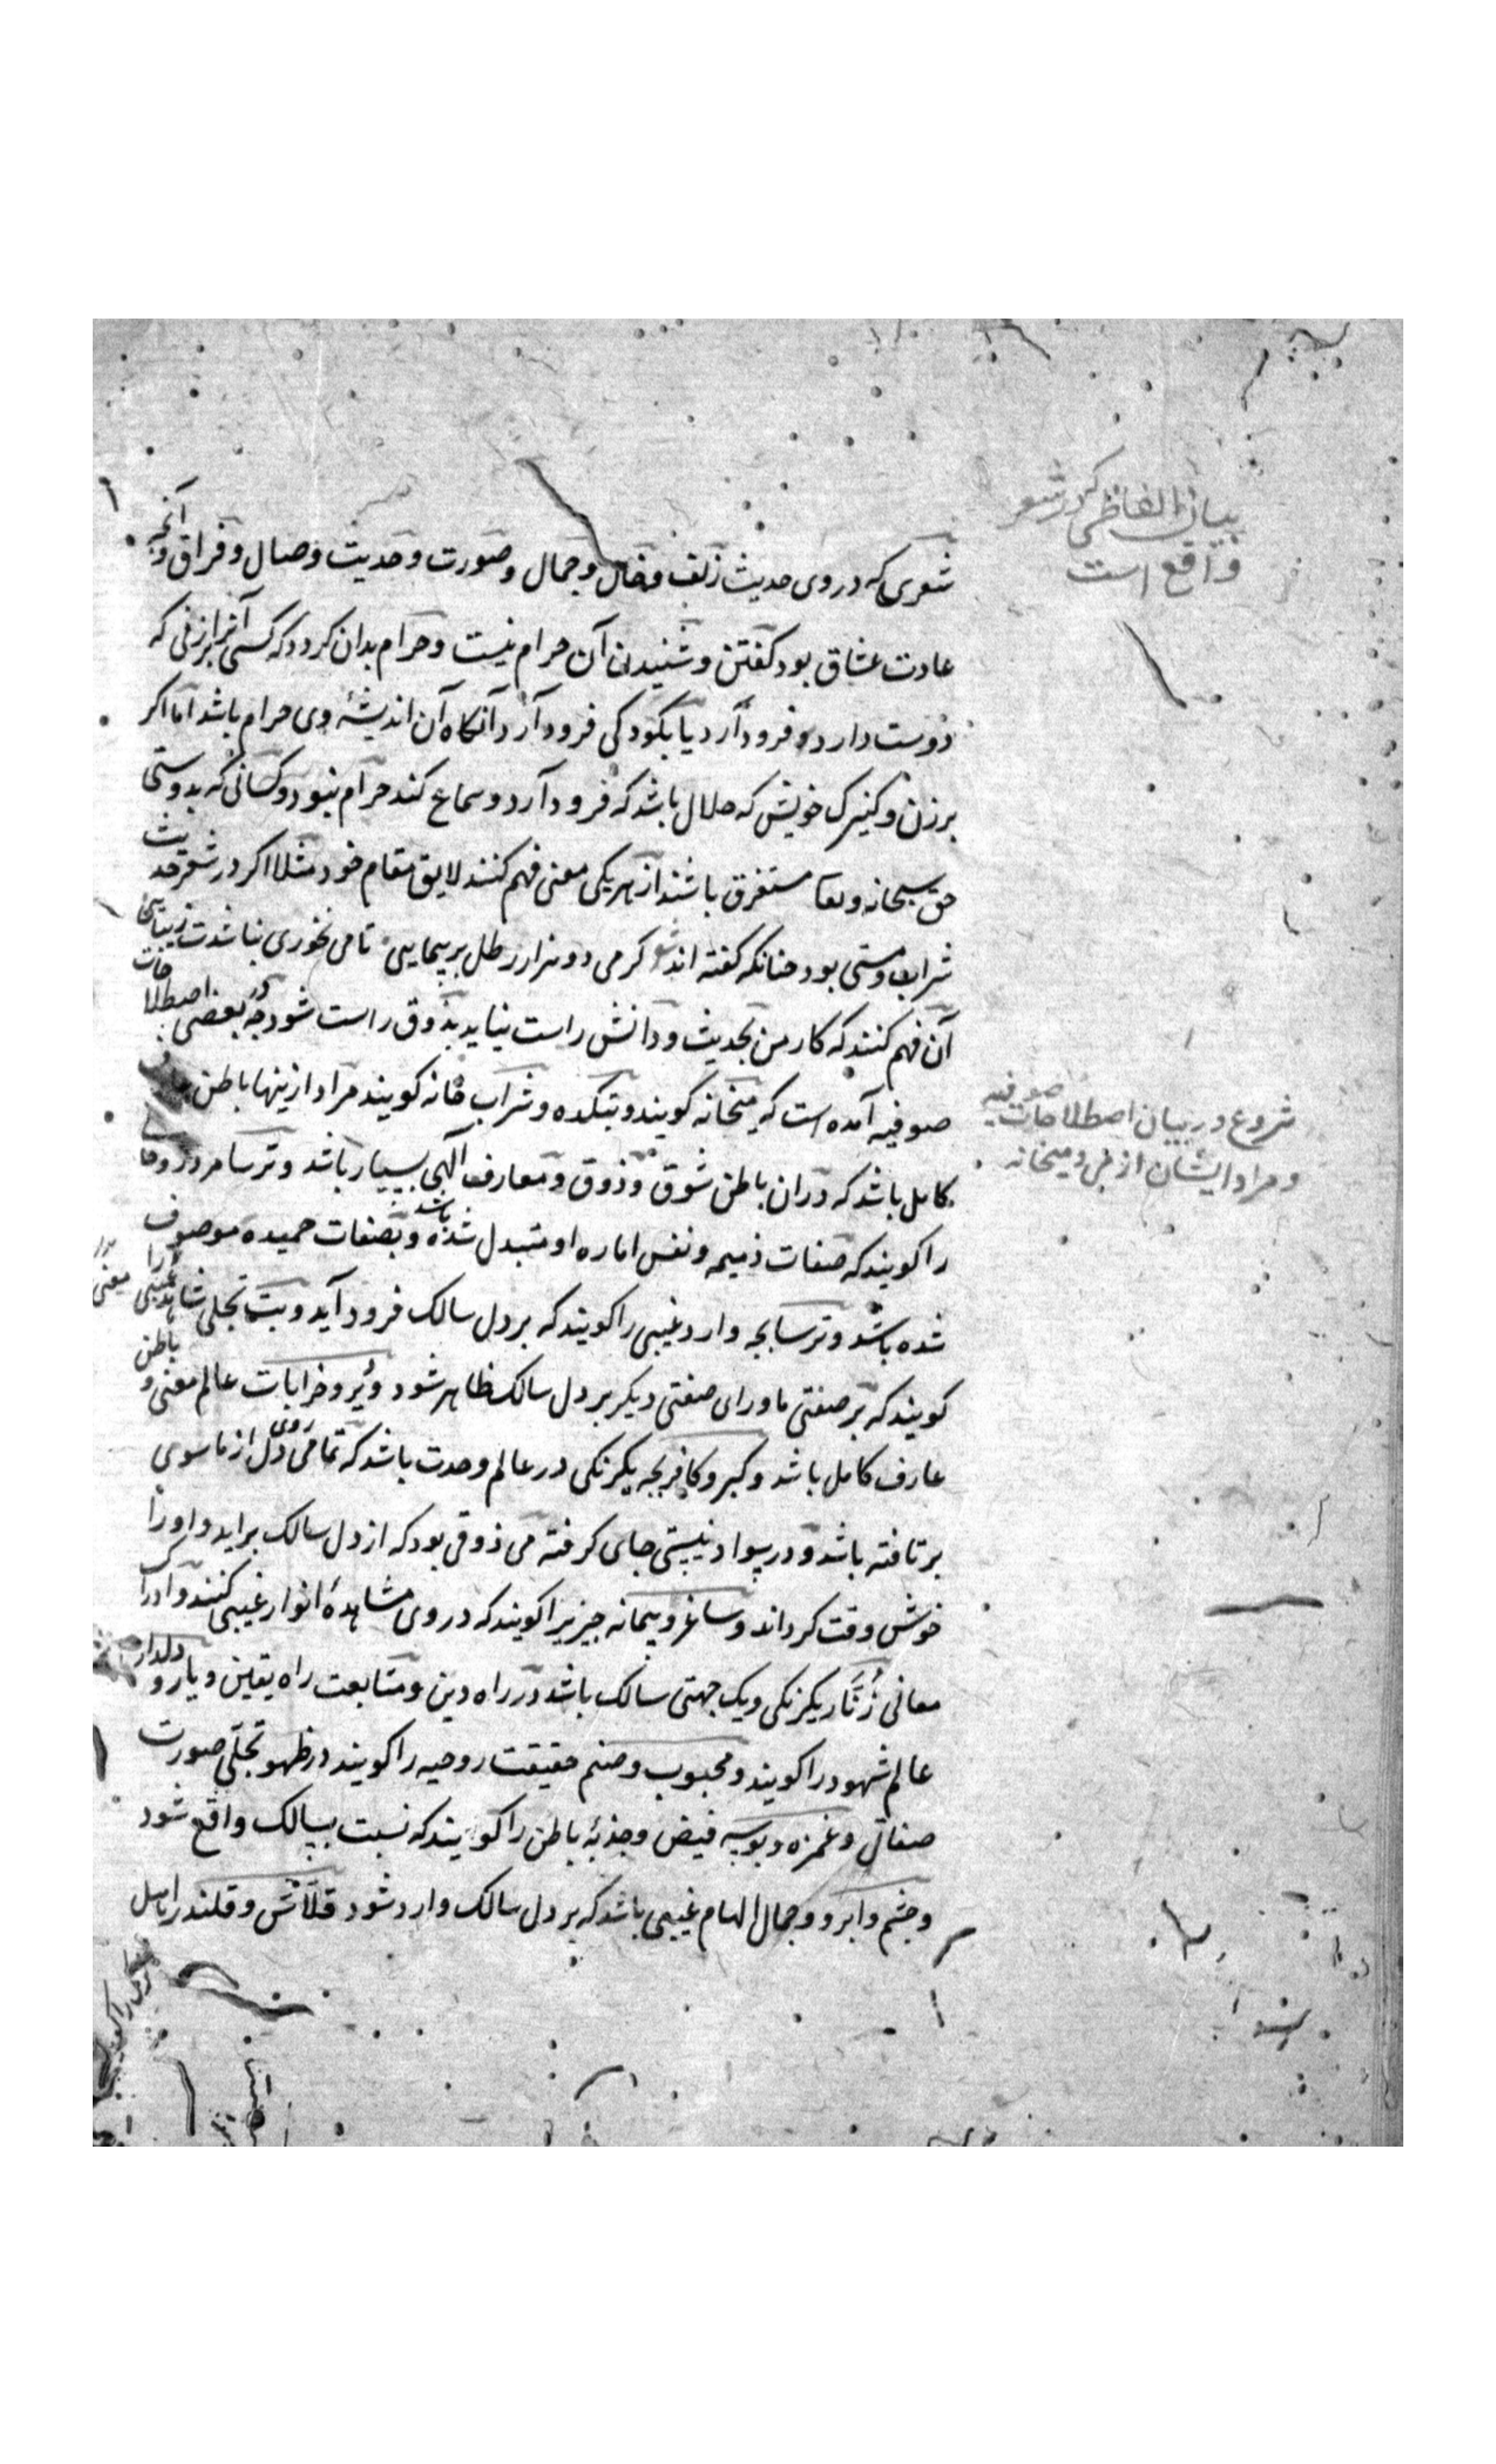 بیان الفاظی که در شعر
واقع است
شعری که در وی حدیث زلف و خال و جمال و صورت و حدیث وصال و فراق و آنچه
عادت عشاق بود کفتن و شنیدن آن حرام نیست و حرام بدان کردد که کسی آنرا بر زنی که
دوست دارد فرود آرد یا بکودکی فرود آرد آنکاه آن اندیشهٔ وی حرام باشد اما اکر
بر زن و کنیزک خویش که حلال باشد که فرود آرد و سماع کند حرام نبود و کسانی که بدوستی
حق سبحانه و تعا مستغرق باشند از هر یکی معنی فهم کنند لایق مقام خود مثلا اکر در شعر حدیث
شراب و مستی بود چنانکه کفته اند کر می دو هزار رطل بر پیمایی تا می نخوری نباشدت زیبایی
آن فهم کنند که کار من بحدیث و دانش راست نیاید بذوق راست شود چه در بعضی اصطلاحات
صوفیه آمده است که میخانه کویند و بتکده و شراب خانه کویند مراد ازینها باطن عارف
شروع در بیان اصطلاحات صوفیه
و مراد ایشان از می و میخانه
کامل باشد که در ان باطن شوق و ذوق و معارف آلهی بسیار باشد و ترسا مرد روحا
را کویند که صفات ذمیمه و نفس اماره او متبدل شده باشد و بصفات حمیده موصوف
شده باشد و ترسابچه وارد غیبی را کویند که بر دل سالک فرود آید و بت تجلی شاهد غیبی را
کویند که بر صفتی ماورای صفتی دیکر بر دل سالک ظاهر شود و دیر و خرابات عالم معنی و باطن
عارف کامل باشد و کبر و کافربچه یکرنکی در عالم وحدت باشد که تمامی روی دل از ماسوی
بر تافته باشد و در سواد نیستی جای کرفته می ذوقی بود که از دل سالک براید و اورا
خوش وقت کرداند و ساغر و پیمانه چیزیرا کویند که در وی مشاهدهٔ انوار غیبی کنند و ادراک
معانی زُنّار یکرنکی و یک جهتی سالک باشد در راه دین و متابعت راه یقین و یار و دلدار
عالم شهود را کویند و محبوب و صنم حقیقت روحیه را کویند در ظهو تجلّی صورت
صفاتی و غمزه و بوسه فیض و جذبهٔ باطن را کویند که نسبت بسالک واقع شود
و چشم و ابرو و جمال الهام غیبی باشد که بر دل سالک وارد شود قلّاش و قلندر اهل